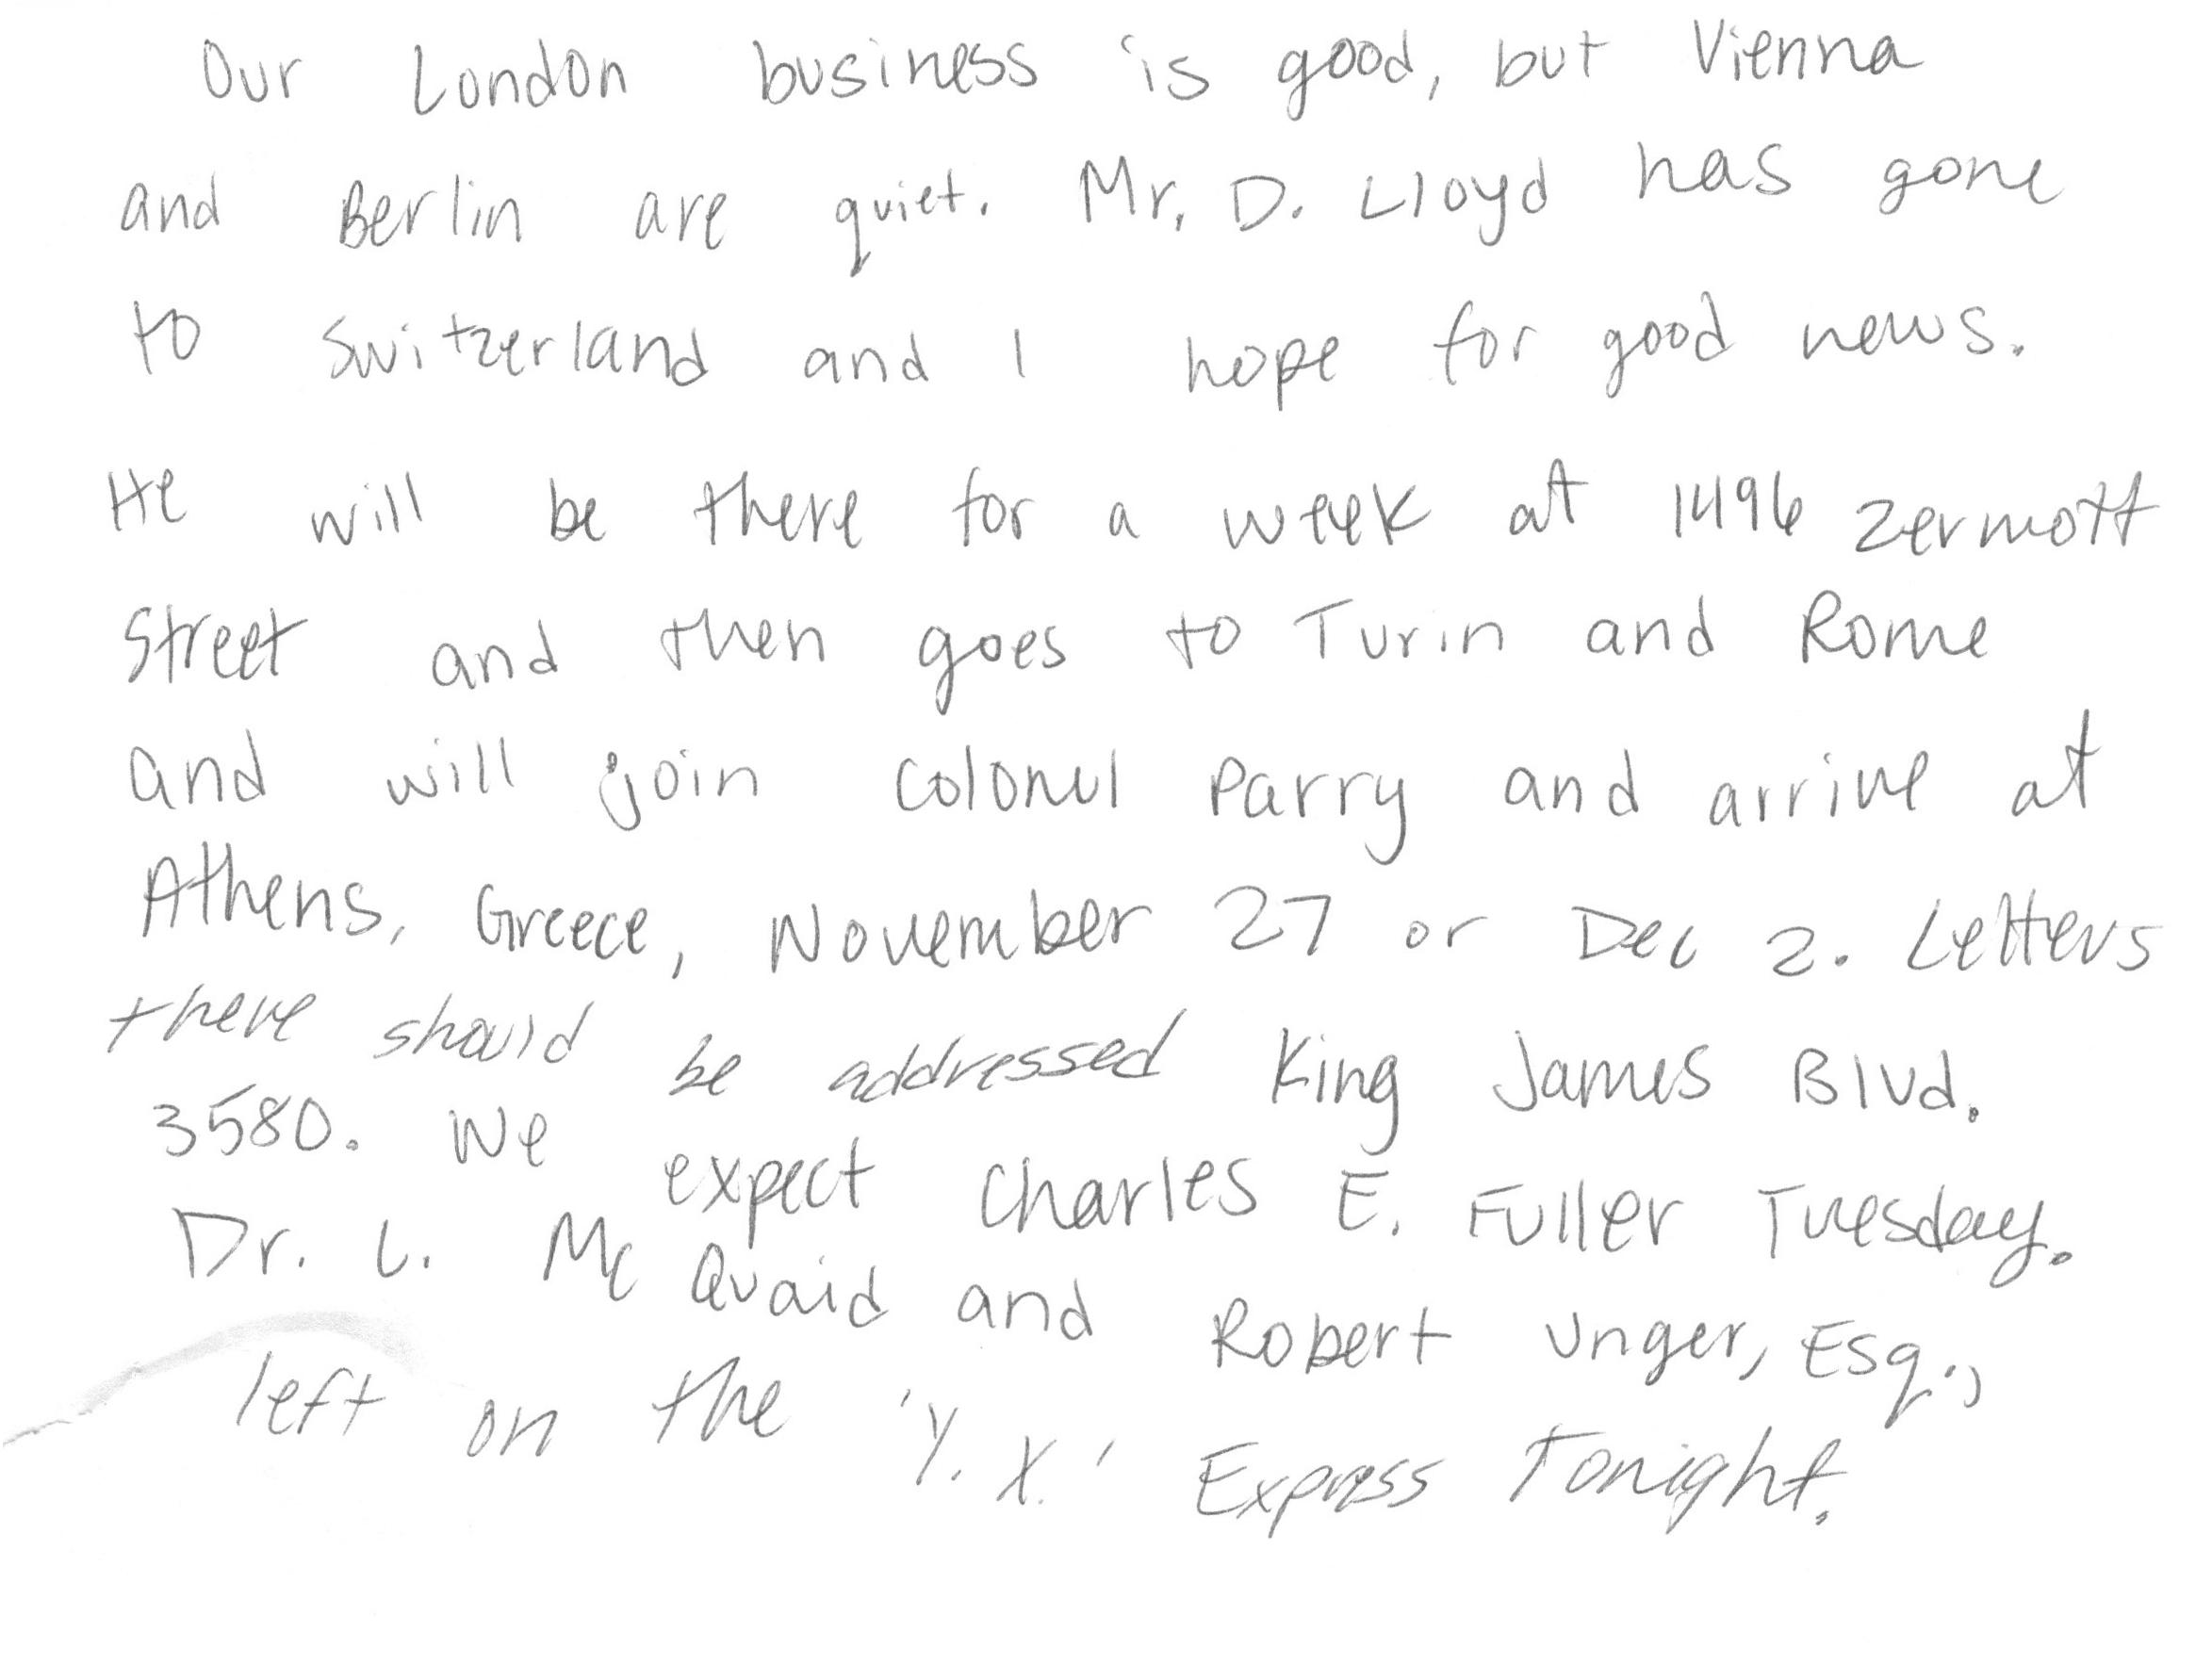 Our London business is good, but Vienna
and Berlin are quiet. Mr. D. Lloyd has gone
to Switzerland and I hope for good news.
He will be there for a week at 1496 Zermott
Street and then goes to Turin and Rome
and will join Colonel Parry and arrive at
Athens, Greece, November 27 or Dec 2. Letters
there should be addressed King James Blvd.
3580. We expect Charles E. Fuller Tuesday.
Dr. L. Mc Quaid and Robert Unger, Esq.,
left on the 'Y. X.' Express Tonight.